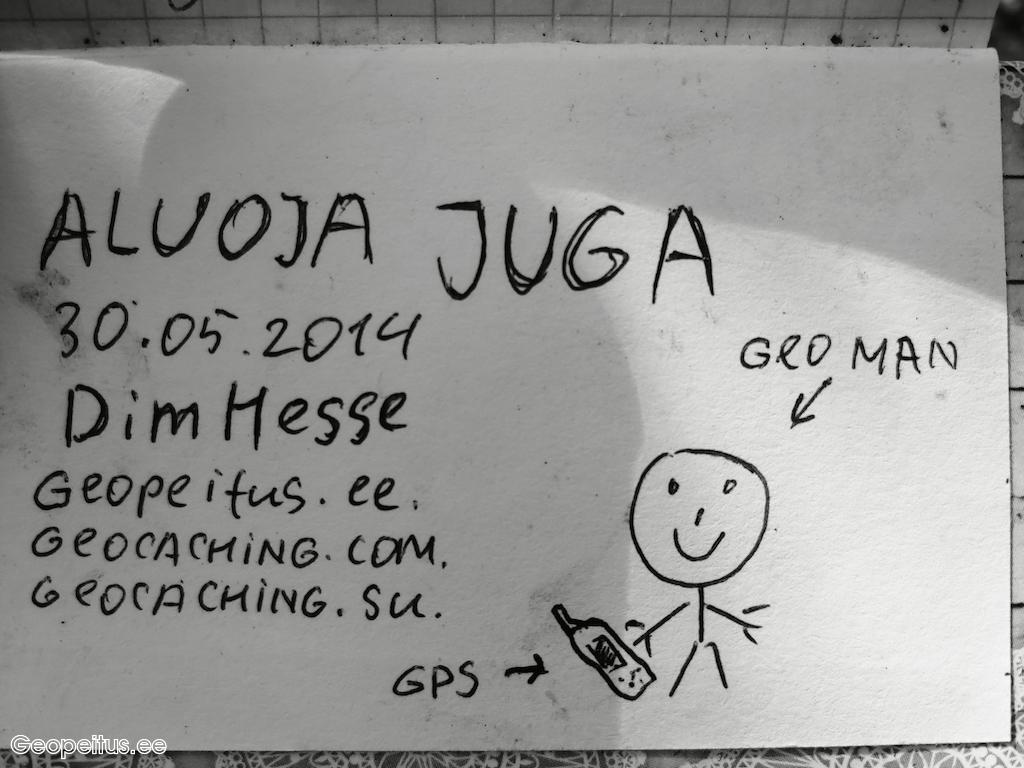 ALUOJA JUGA
30.05.2014
Dim Hesse
Geopeitus.ee.
GEOCACHING.COM.
GEOCACHING.SU.
GEO MAN
GPS
Geopeitus.ee